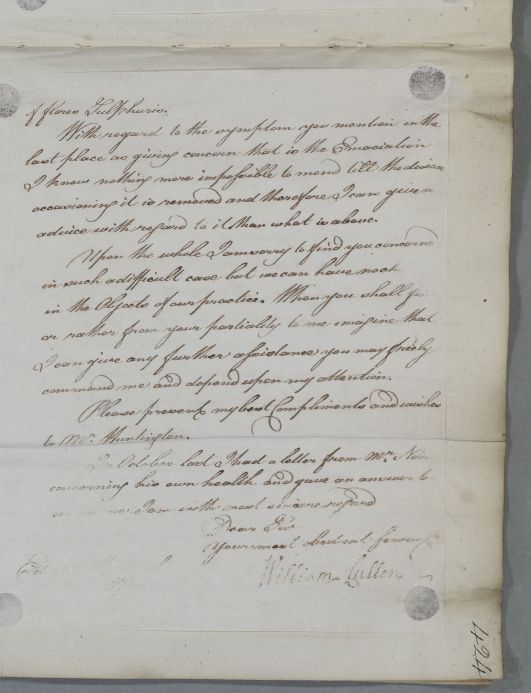 of flores Sulphuris.
With regard to the symptom you mention in the
last place as giving concern that is the Emaciation
I know nothing more impossible to mend till the disease
occasioning it is removed and therefore I can give n
advice with regard to it than what is above.
Upon the whole I am sorry to find you concerned
in such a difficult case but we can have no ch
in the Objects of our practice. When you shall fi
or rather from your partiality to me imagine that
I can give any further assistance you may freely
command me and depend upon my attention.
Please present my best Compliments and wishes
to Mr. Huntington.
In October last I had a letter from Mr.
concerning his own health and gave an answer to
I am with most sincere regard
Dear Sir
Your most Servant
William Cullen
424